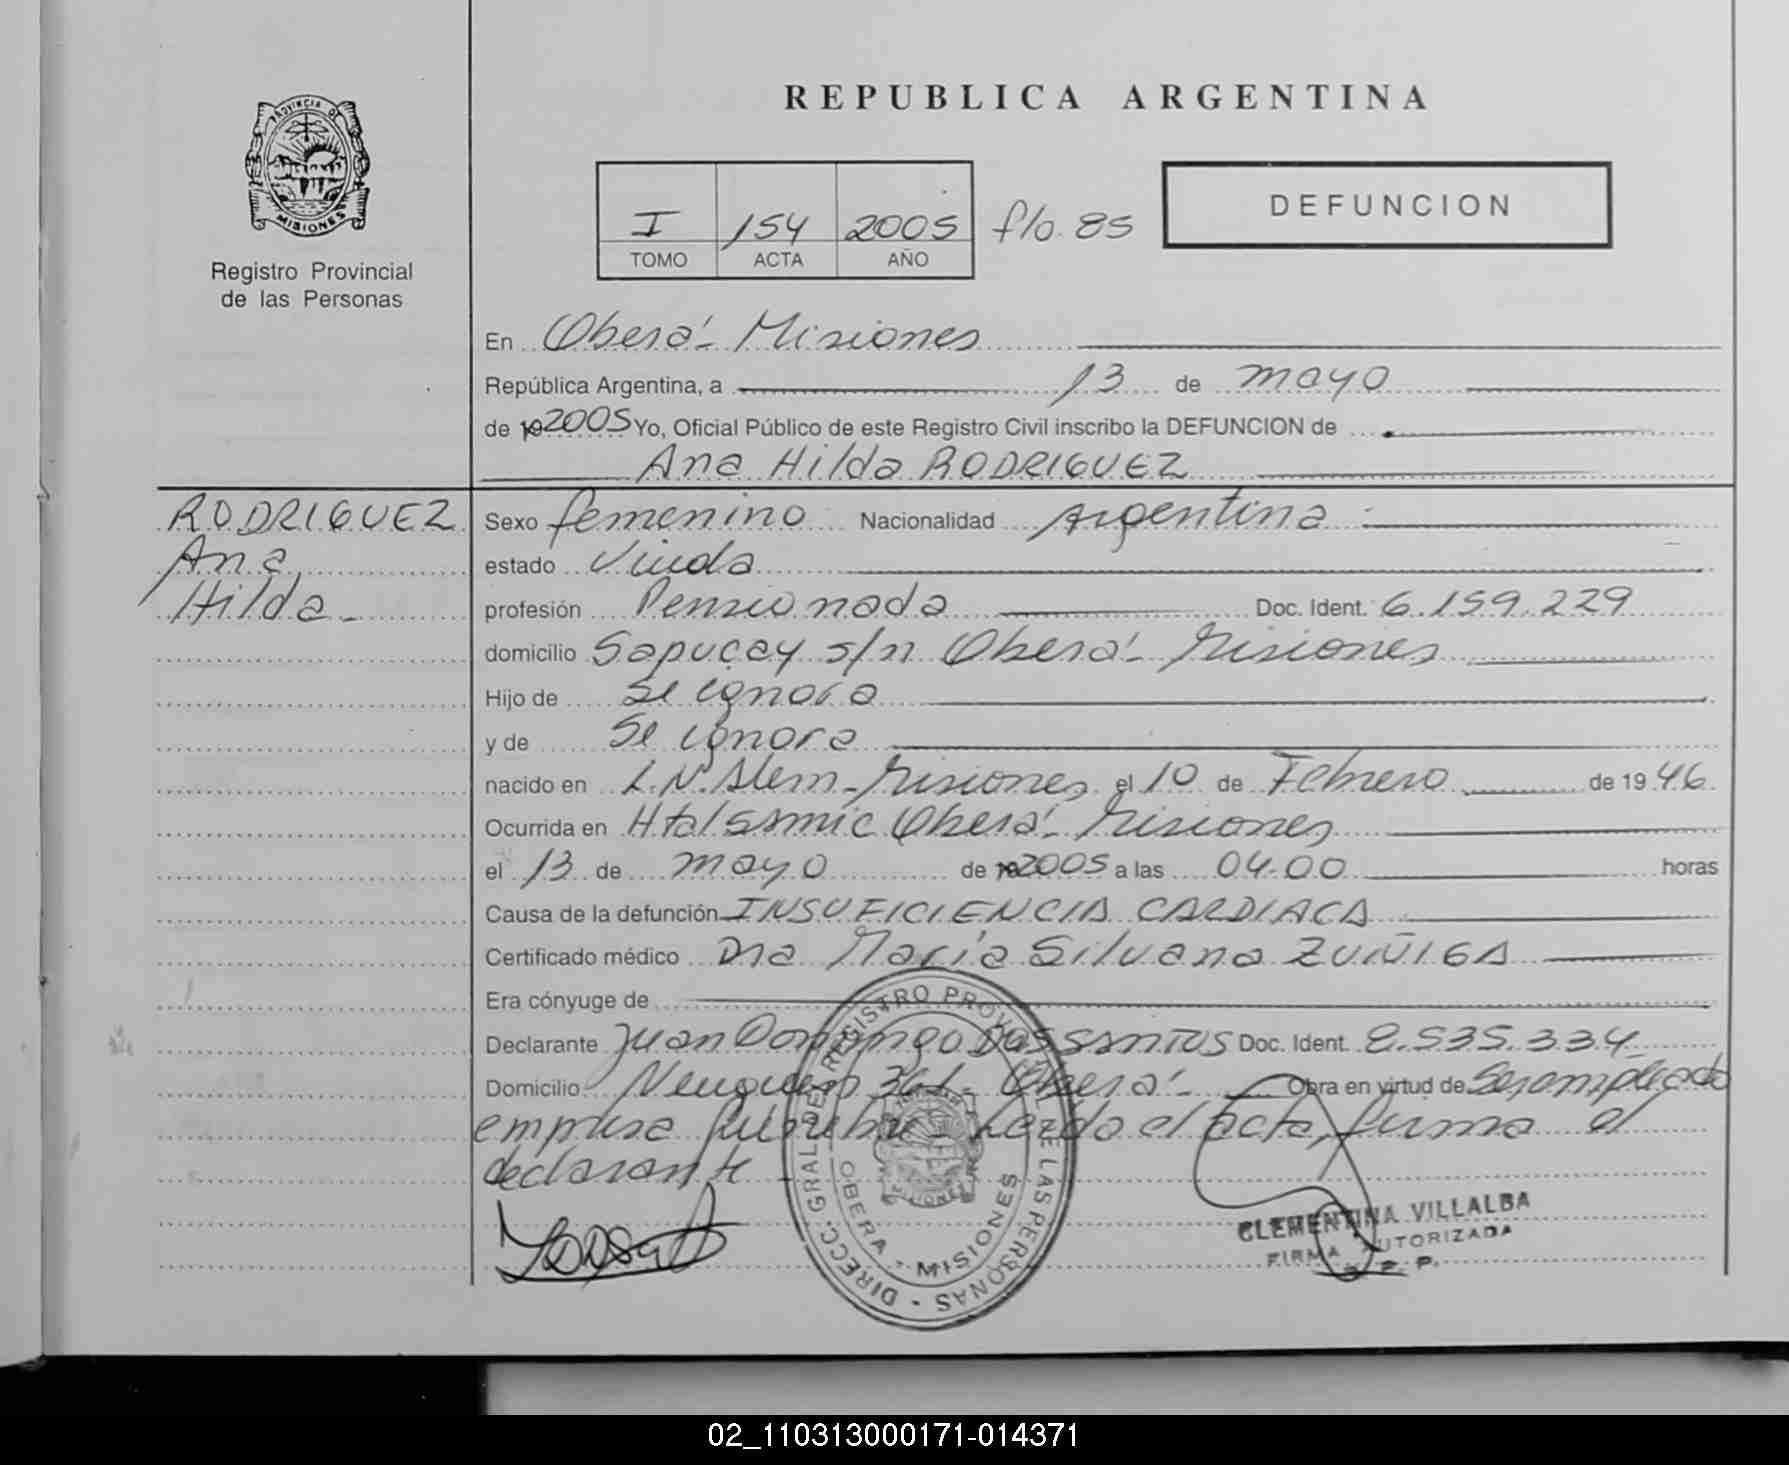 REPUBLICA ARGENTINA
PROVINCIA D
MISIONES
Registro Provincial
de las Personas
I 154 2005 f/o. 85
TOMO ACTA AÑO
DEFUNCION
En Oberá - Misiones
República Argentina, a 13 de mayo
de 19 2005 Yo, Oficial Público de este Registro Civil inscribo la DEFUNCION de
Ana Hilda RODRIGUEZ
RODRIGUEZ
Ana
Hilda -
Sexo femenino Nacionalidad Argentina
estado Viuda
profesión Pensionada Doc. Ident. 6.159.229
domicilio Sapucay s/n Oberá - Misiones
Hijo de Se ignora
y de Se ignora
nacido en L.N. Alem - Misiones el 10 de Febrero de 1946
Ocurrida en Htal SAMIC Oberá - Misiones
el 13 de mayo de 19 2005 a las 04.00 horas
Causa de la defunción INSUFICIENCIA CARDIACA
Certificado médico Dra María Silvana ZUÑIGA
Era cónyuge de
Declarante Juan Domingo Dos SANTOS Doc. Ident. 8.535.334
Domicilio Neuquen 361 - Oberá - Obra en virtud de Ser empleado
empresa fúnebre - Leída el acta, firma el
declarante -
DIRECC. GRAL. DEL REGISTRO PROVINCIAL DE LAS PERSONAS
OBERA - MISIONES
CLEMENTINA VILLALBA
FIRMA AUTORIZADA
R. P. P.
02_110313000171-014371